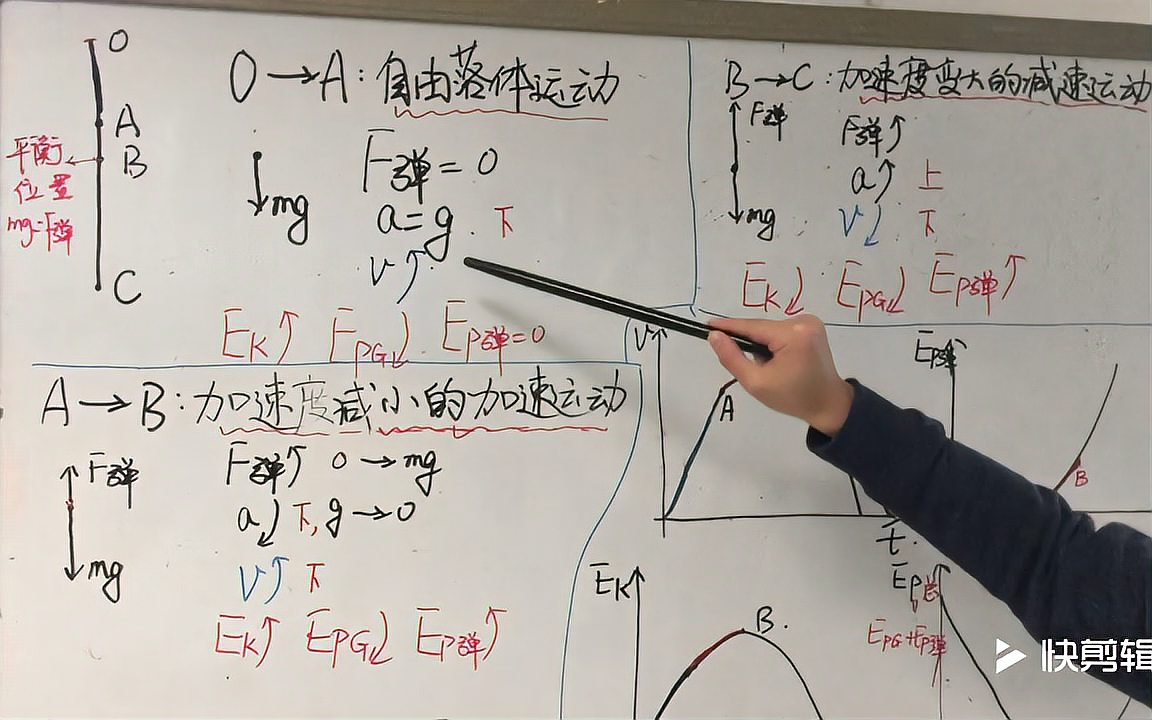 O
A
B
C
平衡
位置
mg=F弹
O→A:自由落体运动
mg
F弹=0
a=g 下
v↑
EK↑ EPG↓ EP弹=0
A→B:加速度减小的加速运动
F弹
mg
F弹↑ 0→mg
a↓ 下,g→0
v↑ 下
EK↑ EPG↓ EP弹↑
B→C:加速度变大的减速运动
F弹
mg
F弹↑
a↑ 上
v↓ 下
EK↓ EPG↓ EP弹↑
v
A
t
EP弹
B
EK
B
EP总
EPG+EP弹
快剪辑